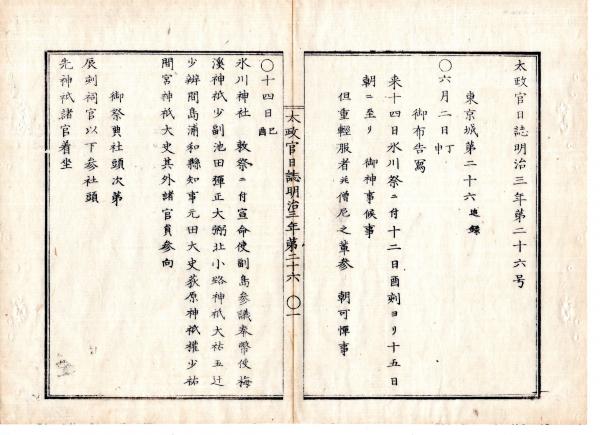 太政官日誌明治三年第二十六号
東京城第二十六 追録
〇六月二日 丁申
御布告写
来十四日氷川祭ニ付十二日酉刻ヨリ十五日
朝ニ至リ 御神事候事
但重軽服者并僧尼之輩参 朝可憚事
太政官日誌明治三年第二十六 〇一
〇十四日 己酉
氷川神社 敕祭ニ付宣命使副島参議奉幣使梅
溪神祇少副池田彈正大弼北小路神祇大祐五辻
少辨間島浦和縣知事元田大史荻原神祇權少祐
間宮神祇大史其外諸官員参向
御祭典社頭次第
辰刻祠官以下参社頭
先神祇諸官着坐